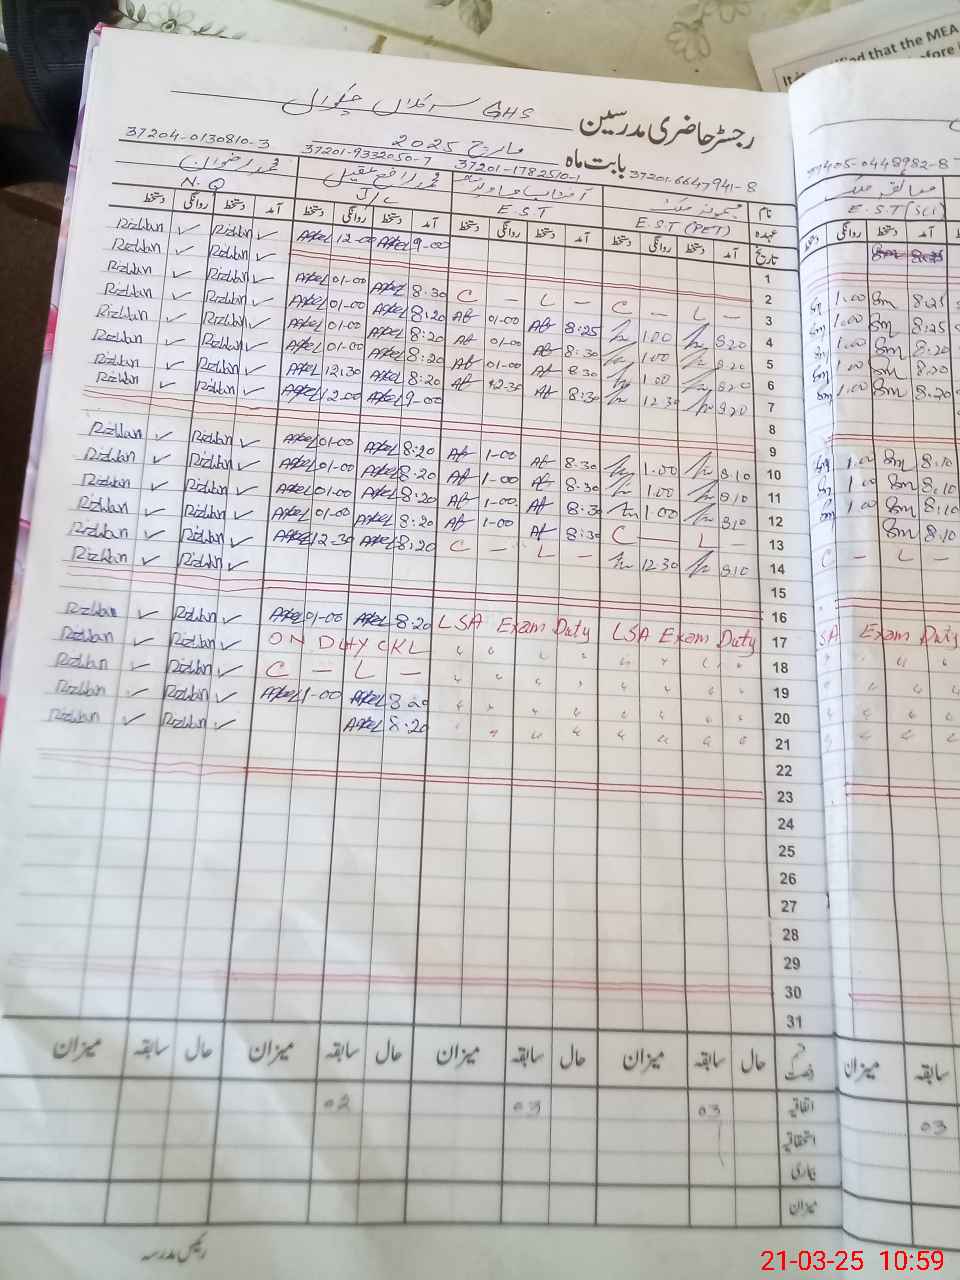 It is certified that the MEA
before
GHS سرکلاں چکوال
رجسٹر حاضری مدرسین
بابت ماہ مارچ 2025
37204-0130810-3 37201-9332050-7 37201-1782510-1 37201-6647941-8
37405-0448982-8
محمد رضوان
N.Q J/C E.S.T E.S.T (PET) نام
E.S.T (SCI)
دستخط روانگی دستخط آمد دستخط روانگی دستخط آمد دستخط روانگی دستخط آمد دستخط روانگی دستخط آمد عہدہ
تاریخ
Rizwan ✓ Rizwan ✓ 12-00 9-00 1
Rizwan ✓ Rizwan ✓ 2
Rizwan ✓ Rizwan ✓ 01-00 8:30 C - L - C - L - 3 1.00 Sm 8.25
Rizwan ✓ Rizwan ✓ 01-00 8:20 01-00 8:25 1.00 8.20 4 1.00 Sm 8.25
Rizwan ✓ Rizwan ✓ 01-00 8:20 01-00 8:30 1.00 8.20 5 1.00 Sm 8.20
Rizwan ✓ Rizwan ✓ 01-00 8:20 01-00 8:30 1.00 8.20 6 1.00 Sm 8.20
Rizwan ✓ Rizwan ✓ 12:30 8:20 12-30 8:30 12.30 8.20 7 1.00 Sm 8.20
Rizwan ✓ Rizwan ✓ 12-00 9-00 8
9
Rizwan ✓ Rizwan ✓ 01-00 8:20 1-00 8.30 1.00 8.10 10 1.00 Sm 8.10
Rizwan ✓ Rizwan ✓ 01-00 8:20 1-00 8.30 1.00 8.10 11 1.00 Sm 8.10
Rizwan ✓ Rizwan ✓ 01-00 8:20 1-00 8.30 1.00 8.10 12 1.00 Sm 8.10
Rizwan ✓ Rizwan ✓ 01-00 8:20 1-00 8:30 C - L - 13 Sm 8.10
Rizwan ✓ Rizwan ✓ 12-30 8:20 C - L - 12.30 8.10 14 C - L -
Rizwan ✓ Rizwan ✓ 15
16
Rizwan ✓ Rizwan ✓ 01-00 8:20 LSA Exam Duty LSA Exam Duty 17 LSA Exam Duty
Rizwan ✓ Rizwan ✓ ON DUTY CKL " " " " " " " " 18 " " " "
Rizwan ✓ Rizwan ✓ C - L - " " " " " " " " 19 " " " "
Rizwan ✓ Rizwan ✓ 1-00 8:20 " " " " " " " " 20 " " " "
Rizwan ✓ Rizwan ✓ 8:20 " " " " " " " " 21 " " "
22
23
24
25
26
27
28
29
30
31
میزان سابقہ حال میزان سابقہ حال میزان سابقہ حال میزان سابقہ حال قسم رخصت
میزان سابقہ
02 03 03 اتفاقیہ
03
استحقاقیہ
بیماری
میزان
رئیس مدرسہ
21-03-25 10:59